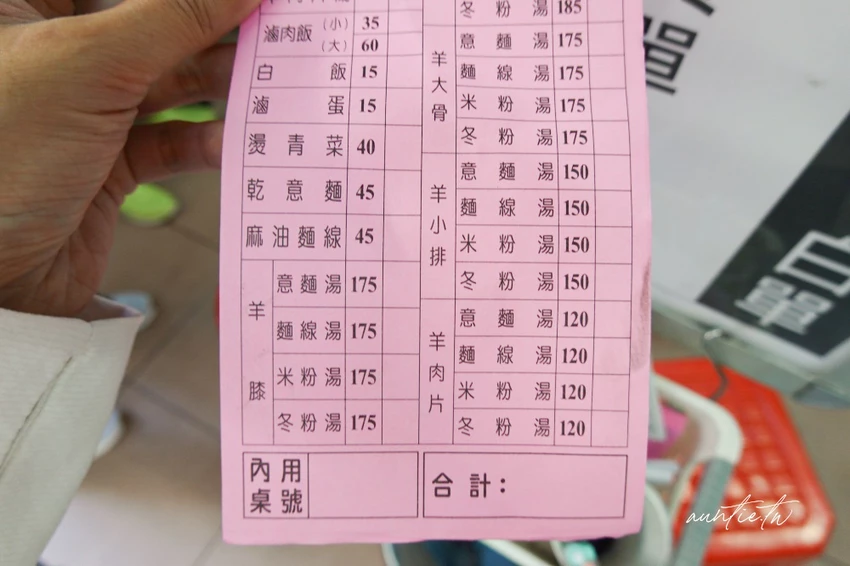 滷肉飯 (小) 35
(大) 60
白飯 15
滷蛋 15
燙青菜 40
乾意麵 45
麻油麵線 45
羊膝
意麵湯 175
麵線湯 175
米粉湯 175
冬粉湯 175
內用桌號
冬粉湯 185
羊大骨
意麵湯 175
麵線湯 175
米粉湯 175
冬粉湯 175
羊小排
意麵湯 150
麵線湯 150
米粉湯 150
冬粉湯 150
羊肉片
意麵湯 120
麵線湯 120
米粉湯 120
冬粉湯 120
合計：
單
白
單
auntie.tw